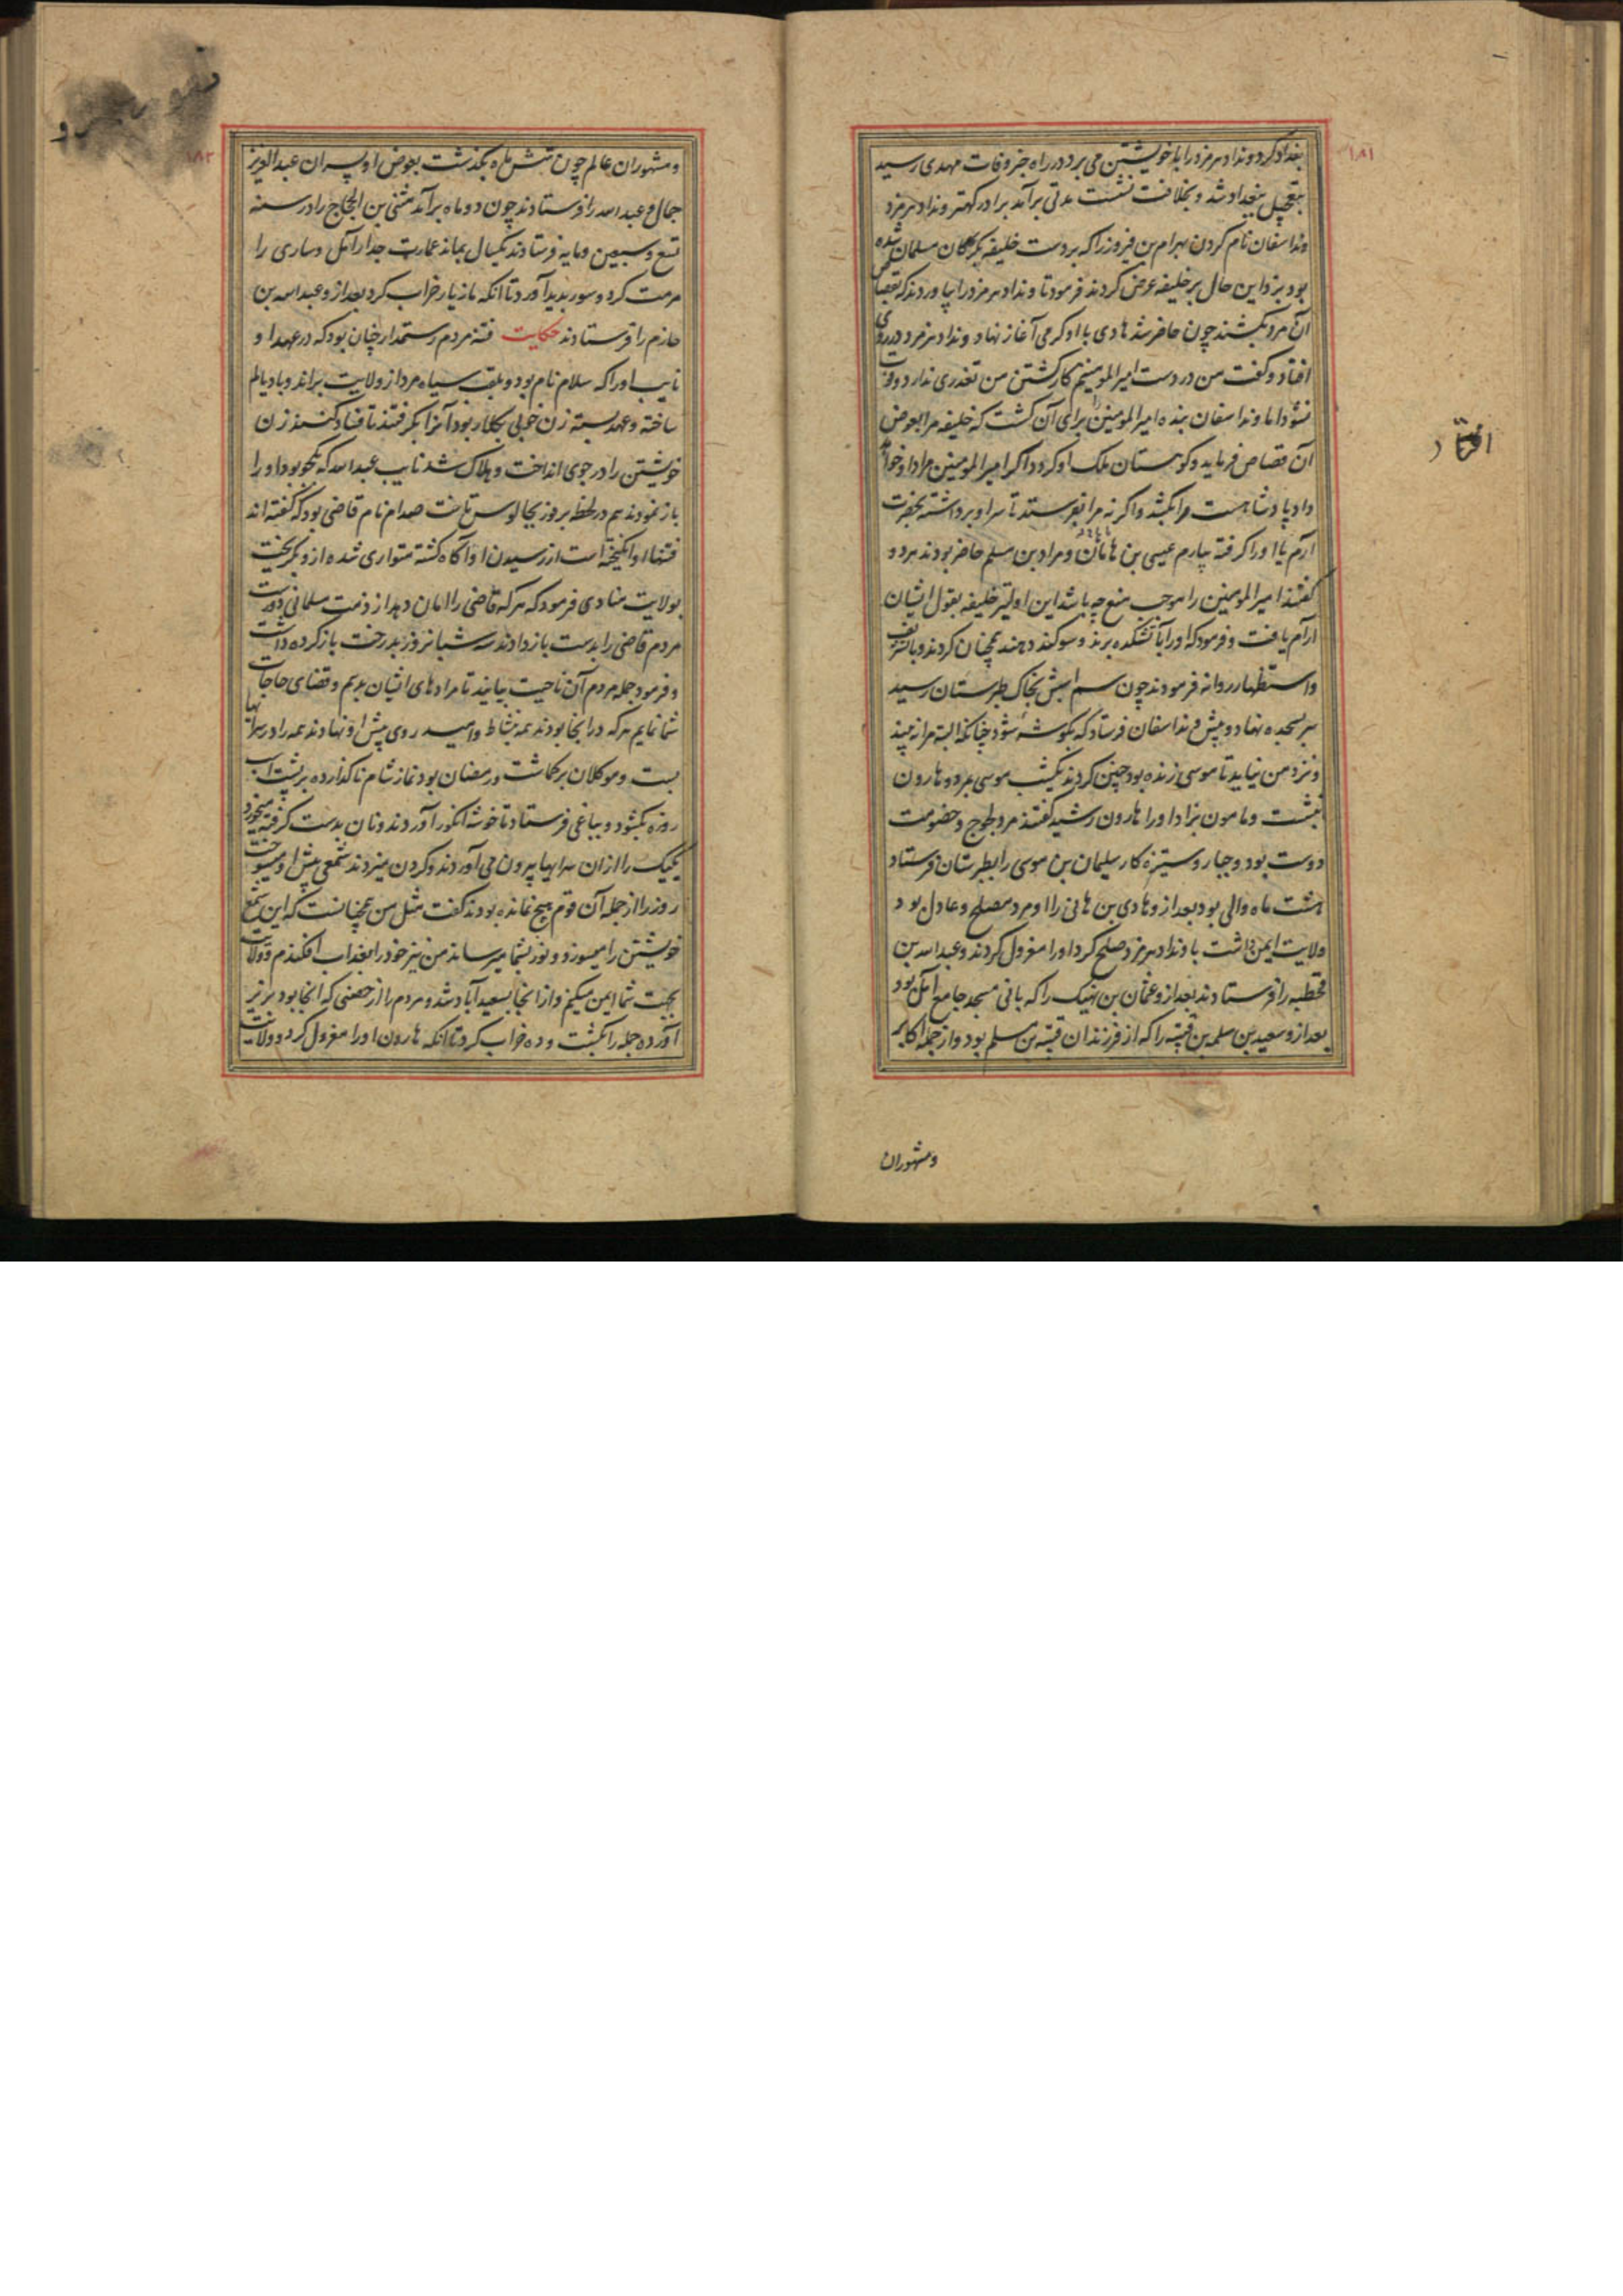 ۱۸۱
بغداد کرد و ونداد هرمزد را با خویشتن می برد در راه خبر وفات مهدی رسید
بتعجیل ببغداد شد و بخلافت نشست مدتی برآمد برادر کهتر ونداد هرمزد
ونداسفان نام کردن بهرام بن فیروز را که بر دست خلیفه بگرگان مسلمان شده
بود بزد این حال بر خلیفه عرض کردند فرمود تا ونداد هرمزد را بیاوردند که بقصاص
آن مرد بکشند چون حاضر شد هادی با او گرمی آغاز نهاد و ونداد هرمزد در روی
افتاد و گفت من در دست امیر المومنینم کار کشتن من تعذری ندارد و فوت
نشود اما ونداسفان بنده امیر المومنین را برای آن کشت که خلیفه مرا بعوض
آن قصاص فرماید و کوهستان ملک او گردد اگر امیر المومنین مراد او خواهد
داد پادشاهست مرا بکشد و اگر نه مرا بفرستد تا سر او برداشته بحضرت
آرم یا او را گرفته بیارم عیسی بن هامان و مراد بن مسلم حاضر بودند هر دو
گفتند امیر المومنین را موجب منع چه باشد این اولیتر خلیفه بقول ایشان
آرام یافت و فرمود که او را بآتشکده برند و سوگند دهند همچنان کردند و با تشریف
و استظهار روانه فرمودند چون سم اسبش بخاک طبرستان رسید
سر بسجده نهاد و پیش ونداسفان فرستاد که بگوشه شود چنانکه البته مرا نه بیند
و نزد من نیاید تا موسی زنده بود چنین کردند یکشب موسی بمرد و هارون
بنشست و مامون بزاد او را هارون رشید گفتند مرد لجوج و خصومت
دوست بود و جبار و ستیزه کار سلیمان بن موسی را بطبرستان فرستاد
هشت ماه والی بود بعد ازو هادی بن هانی را او مرد مصلح و عادل بود
ولایت ایمن داشت با ونداد هرمزد صلح کرد او را معزول کردند و عبد الله بن
قحطبه را فرستادند بعد ازو عثمان بن نهیک را که بانی مسجد جامع آمل بود
بعد ازو سعید بن سلمه بن قتیبه را که از فرزندان قتیبه بن مسلم بود و از جمله اکابر
ومشهوران
۱۸۲
و مشهوران عالم چون شش ماه بگذشت بعوض او پسران عبد العزیز
حمال و عبد الله را فرستادند چون دو ماه برآمد مثنی بن الحجاج را در سنه
تسع و سبعین و مایه فرستادند یکسال بماند عمارت جدار آمل و ساری را
مرمت کرد و سور بدید آورد تا آنکه مازیار خراب کرد بعد ازو عبد الله بن
حازم را فرستادند حکایت فتنه مردم رستمدار چنان بود که در عهد او
نایب او را که سلام نام بود و بلقب سیاه مرد از ولایت براند و با دیالم
ساخته و عهد بسته زن خوبی بکلار بود آنرا بگرفتند تا فساد کنند زن
خویشتن را در جوی انداخت و هلاک شد نایب عبد الله که بکجو بود او را
باز نمودند هم در لحظه بروز بچالوس تاخت صدام نام قاضی بود که گفته اند
فتنها او انگیخته است از رسیدن او آگاه گشته متواری شده ازو بگریخت
بولایت منادی فرمود که هر که قاضی را امان دهد از ذمت مسلمانی دورست
مردم قاضی را بدست باز دادند سه شبانروز بدرخت باز کرده داشت
و فرمود جمله مردم آن ناحیت بیایند تا مرادهای ایشان بدهم و قضای حاجات
شما نمایم هر که در آنجا بودند همه بنشاط و امید روی پیش او نهادند همه را در سرایها
ببست و موکلان برگماشت و رمضان بود نماز شام ناگذارده بر پشت اسب
روزه بگشود و بباغی فرستاد تا خوشه انگور آوردند و نان بدست گرفته میخورد
یکیک را از آن سرایها بیرون می آوردند و گردن میزدند شمعی پیش او میسوخت
روز را از جمله آن قوم هیچ نمانده بودند گفت مثل من همچنانست که این شمع
خویشتن را میسوزد و نور بشما میرساند من نیز خود را بعذاب افکندم و ولایت
بجهت شما ایمن میکنم و از آنجا بسعیدآباد شد و مردم را از حصنی که آنجا بود بزیر
آورده جمله را بکشت و ده خراب کرد تا آنکه هارون او را معزول کرد و ولایت